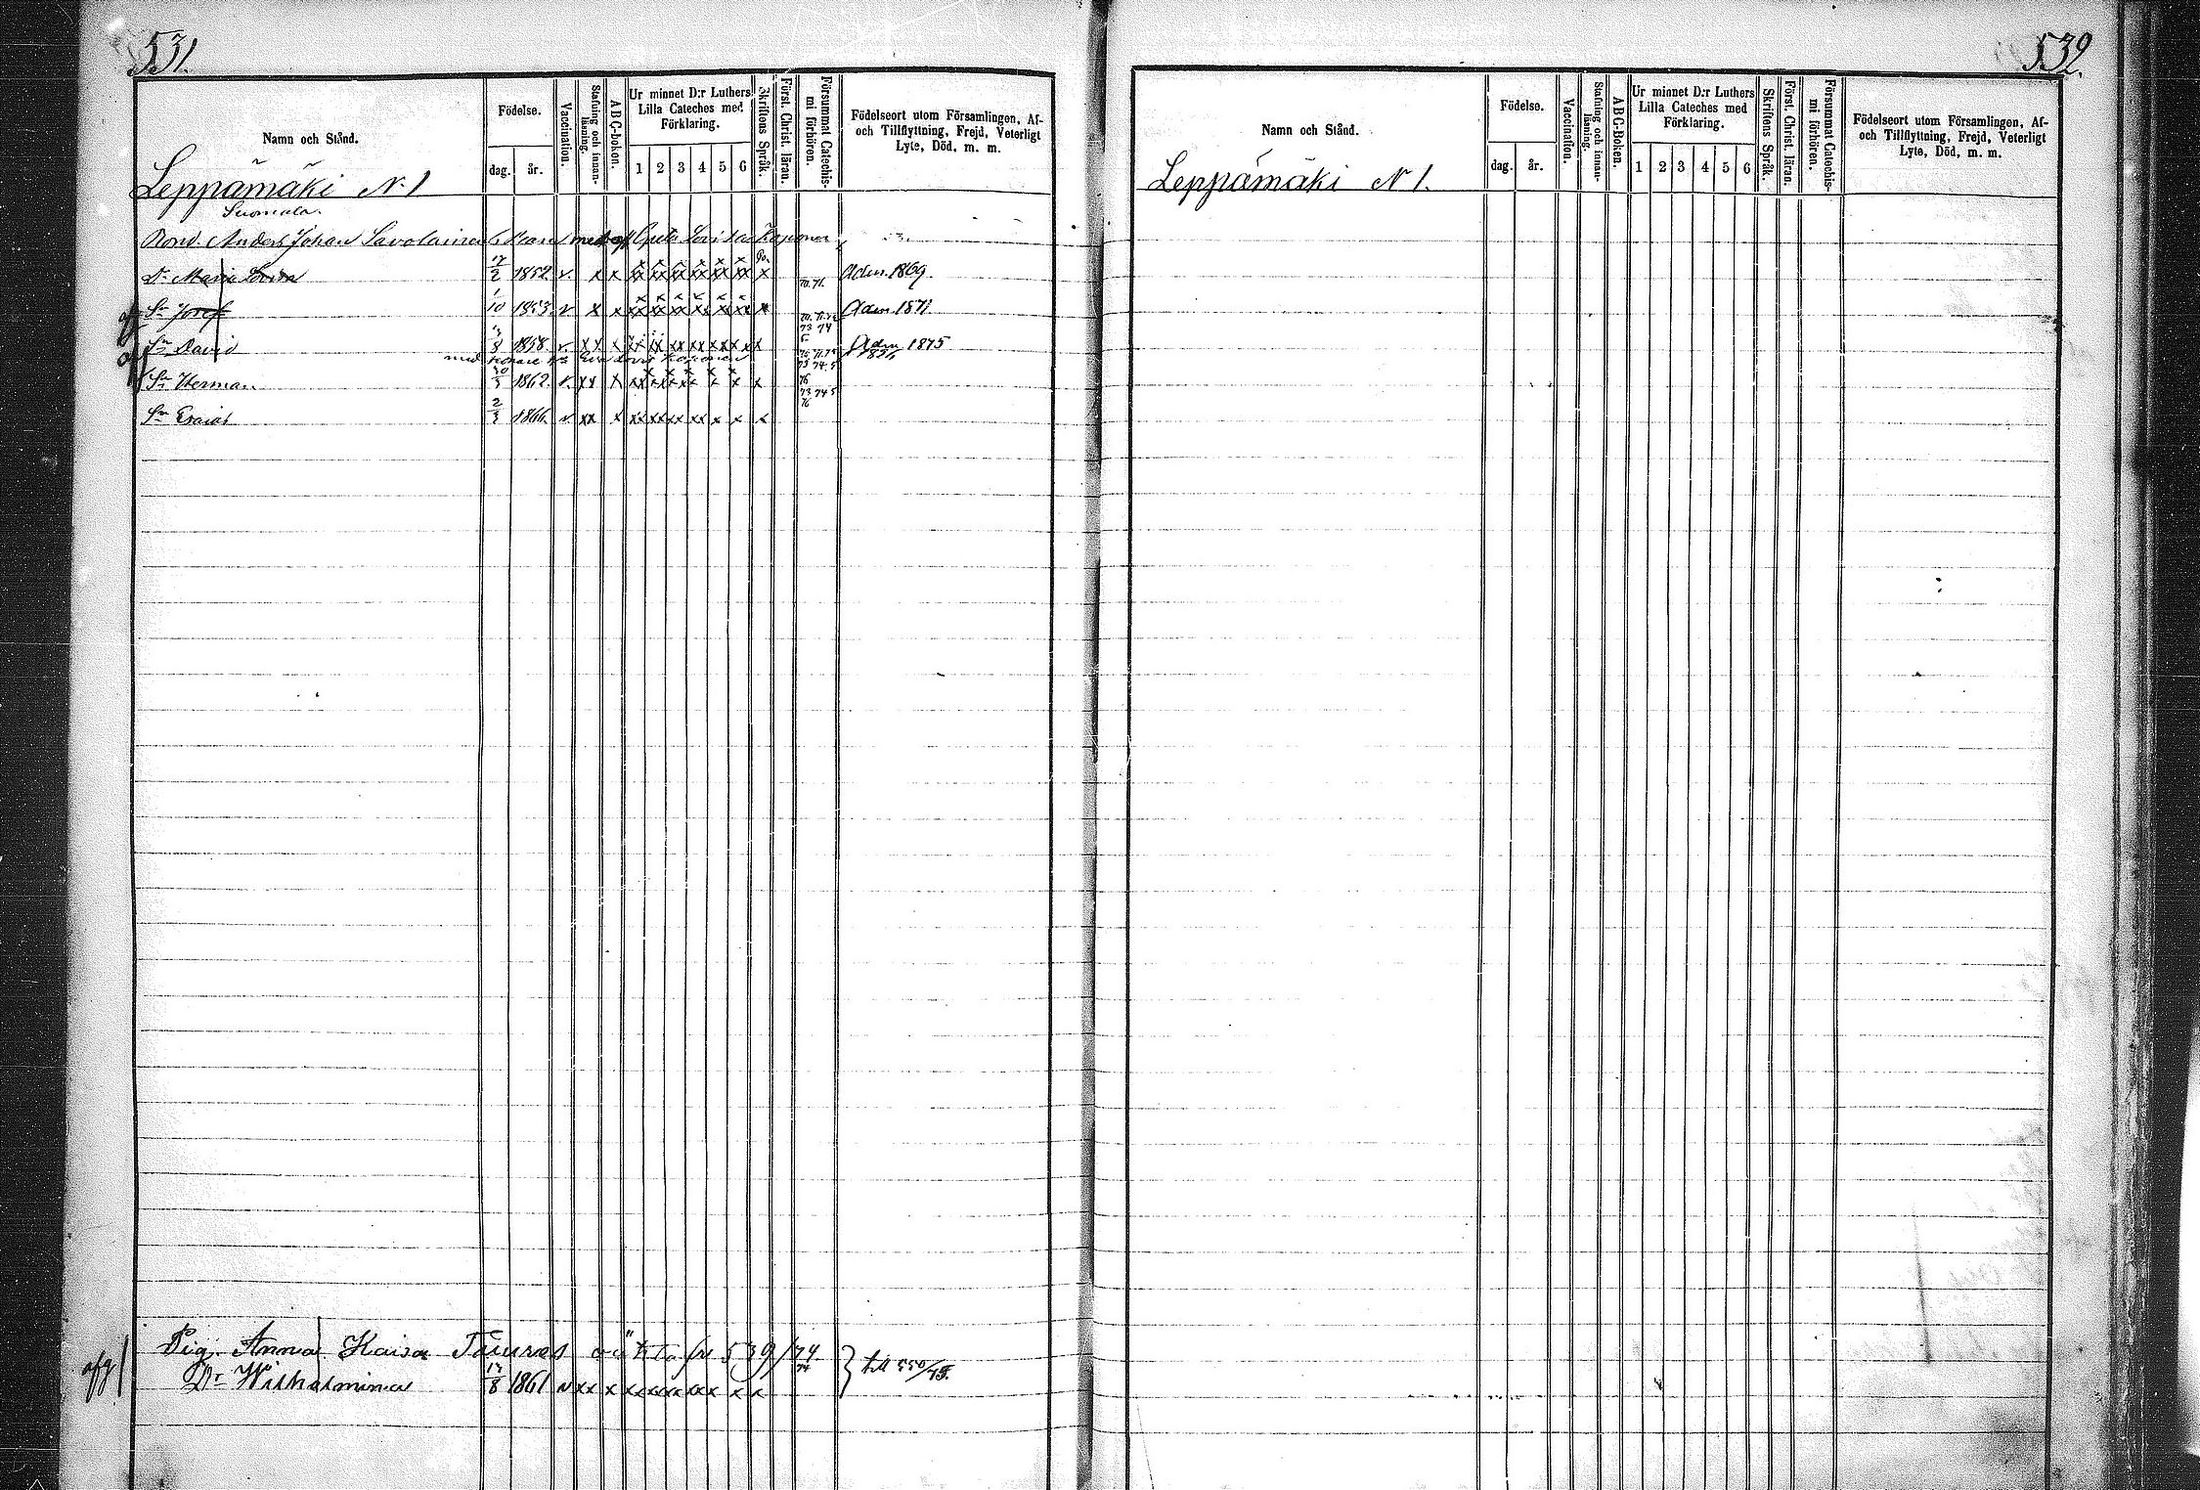 531.
Namn och Stånd.
Födelse.
dag.
år.
Vaccination.
Stafning och innan-
läsning.
ABC-boken.
Ur minnet D:r Luthers
Lilla Cateches med
Förklaring.
1 2 3 4 5 6
Skriftens Språk.
Först. Christ. läran.
Försummat Catechis-
mi förhören.
Födelseort utom Församlingen, Af-
och Tillflyttning, Frejd, Veterligt
Lyte, Död, m. m.
Leppämäki N. 1
Suomela.
Bond. Anders Johan Savolainen Lovisa Kaponen
Dr Maria Lovisa 17/2 1852 v x x x 70.71. Adm. 1869.
Sn Josef 1/10 1853 v x x x 73 74 Adm. 1871.
Sn David 1858 v xx x Adm 1875
Sn Herman 1862 v xx x x 76
Sn Esaias 2/3 1866 v xx x x x x 73 74 5 76
Pig. Anna Kaisa Tauras fr 539/74. till 550/75.
afg Dr Wilhelmina 13/8 1861 v xx x x x
532.
Namn och Stånd.
Födelse.
dag.
år.
Vaccination.
Stafning och innan-
läsning.
ABC-Boken.
Ur minnet D:r Luthers
Lilla Cateches med
Förklaring.
1 2 3 4 5 6
Skriftens Språk.
Först. Christ. läran.
Försummat Catechis-
mi förhören.
Födelseort utom Församlingen, Af-
och Tillflyttning, Frejd, Veterligt
Lyte, Död, m. m.
Leppämäki N 1.